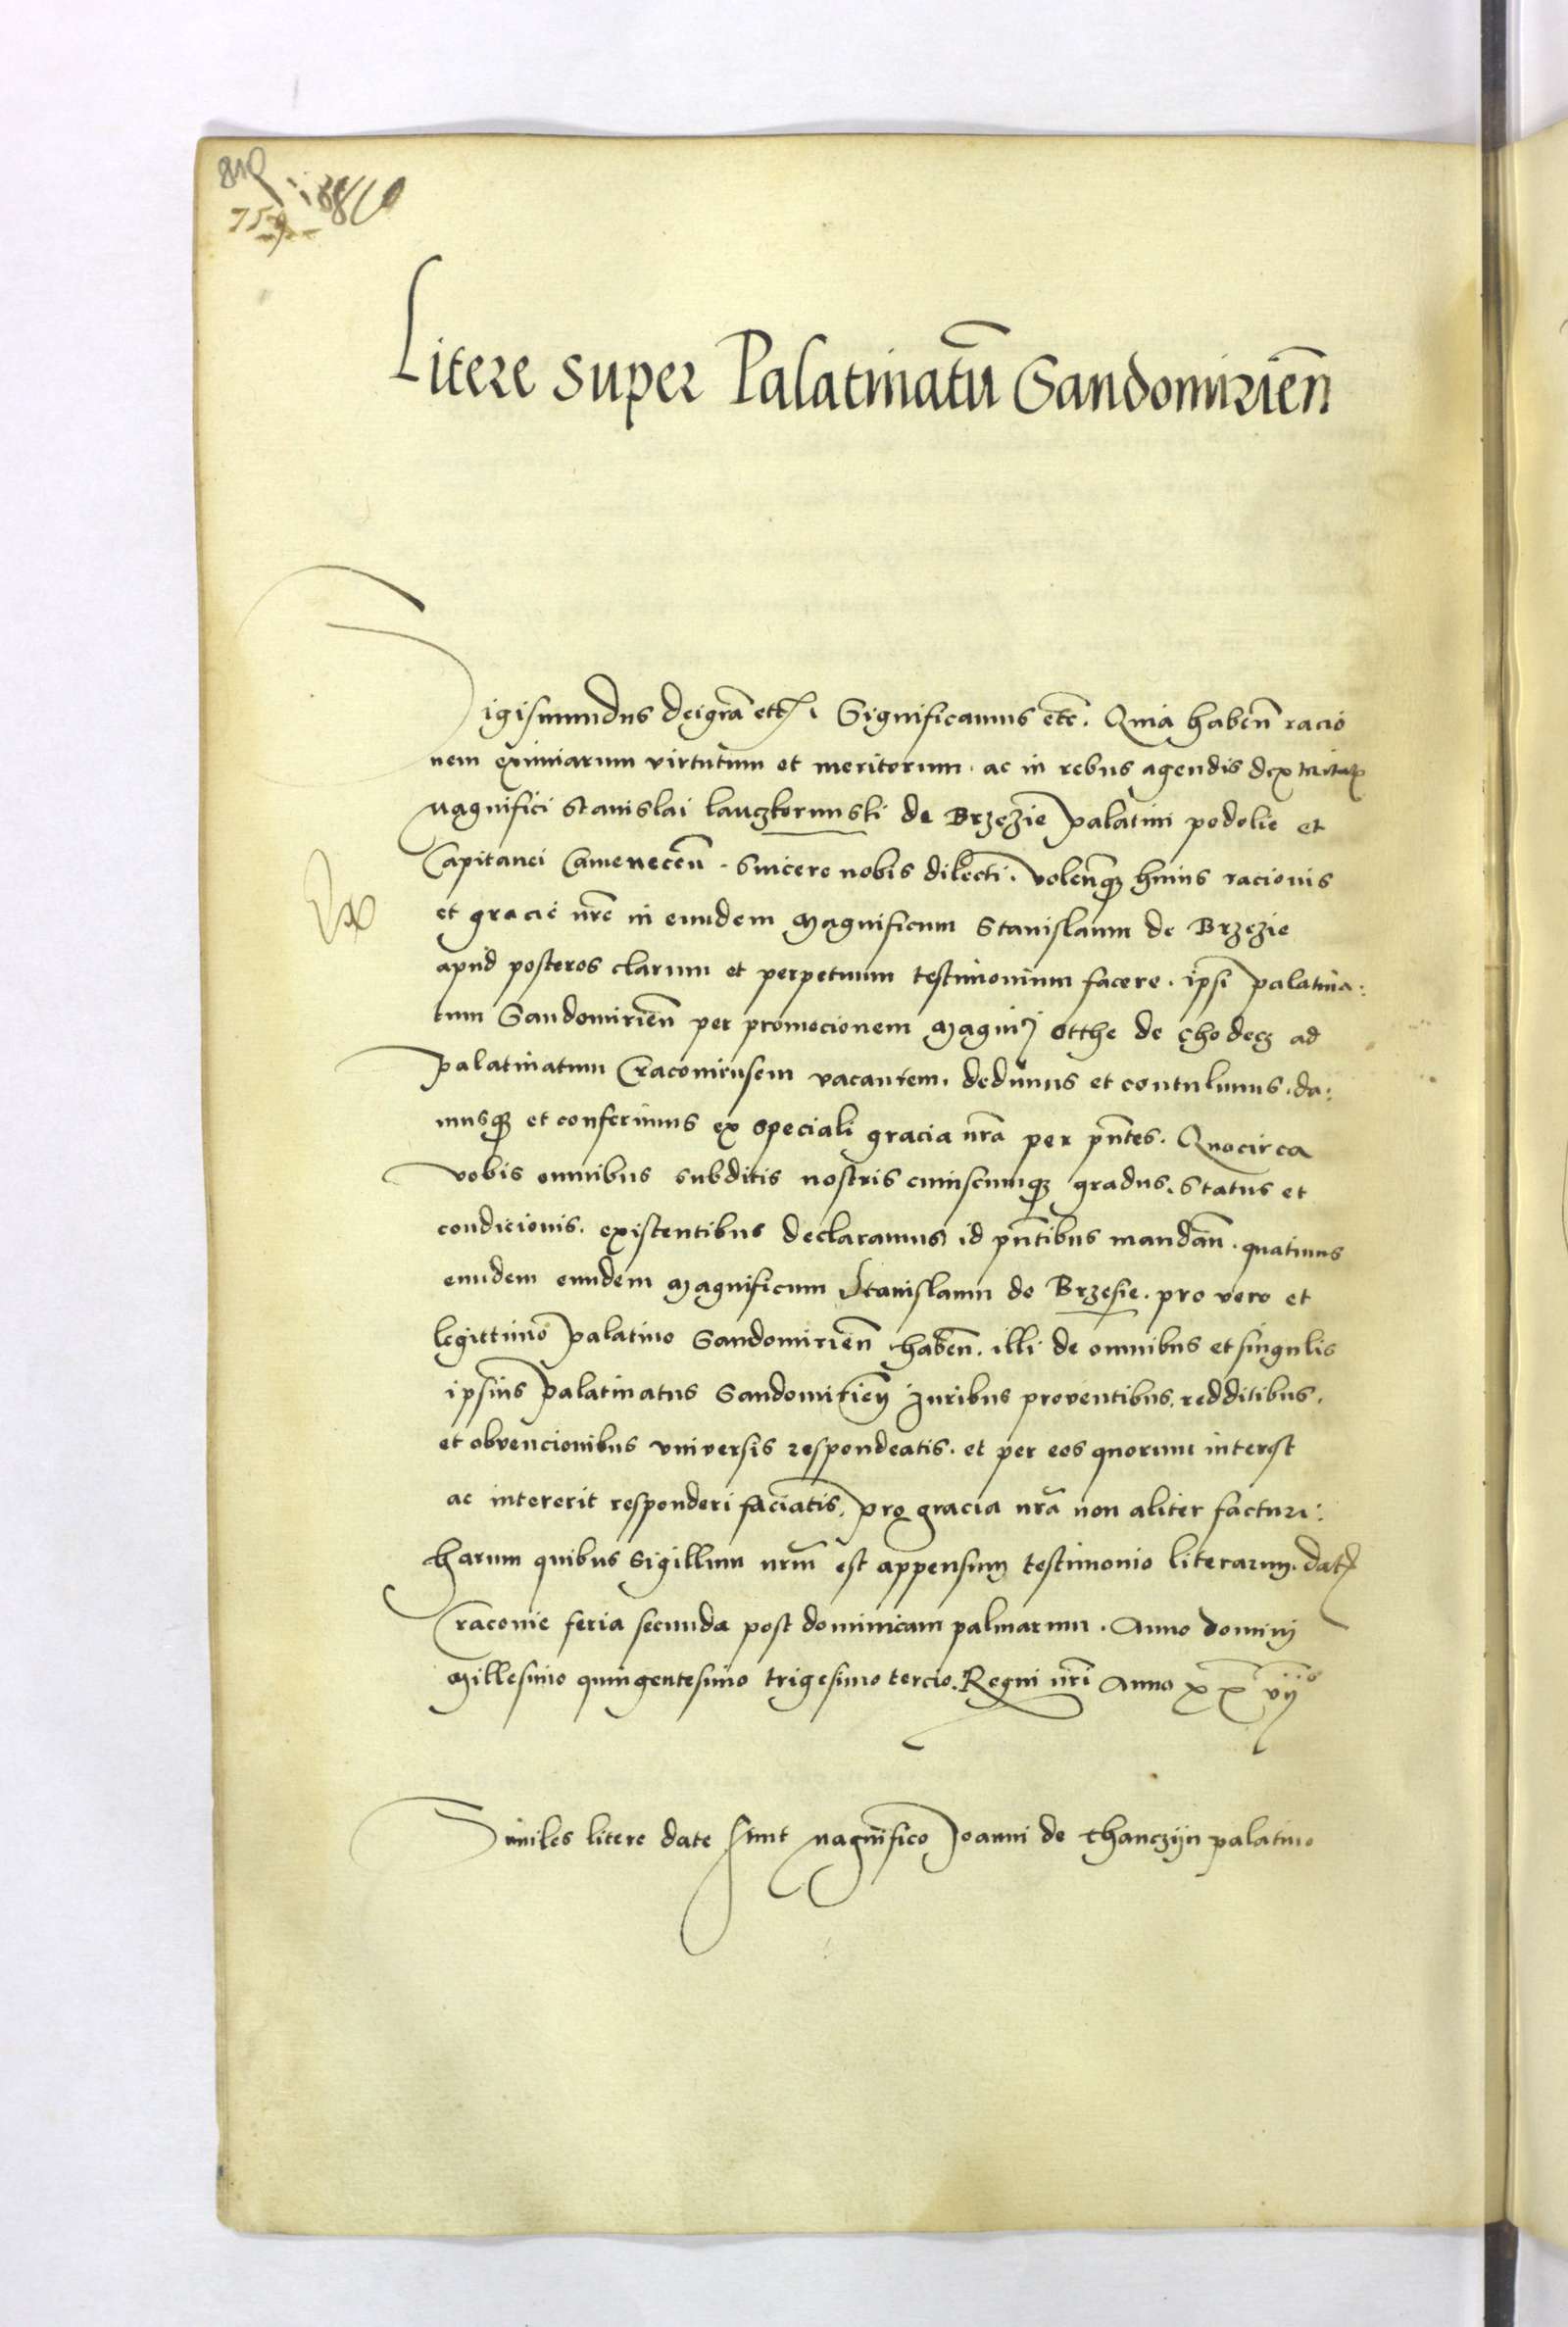 759
Litere super Palatinatū Sandomirień
Sigismundus dei grā etc. Significamus etc. Quia habeń racio
nem eximiarum virtutum et meritorum. ac in rebus agendis dexteritatẹ
Magnifici Stanislai lanczkorunski de Brzezie palatini podolie et
Capitanei Cameneceń. Sincere nobis dilecti. volenꝗ huius racionis
et gracie nr̄e in eundem Magnificum Stanislaum de Brzezie
apud posteros clarum et perpetuum testimonium facere. ipsi palatina:
tum Sandomirień per promocionem Magnici Otthe de Chodecz ad
palatinatum Cracouiensem vacantem. dedimus et contulimus. da:
musqꝫ et conferimus ex speciali gracia nrā per pn̄tes. Quocirca
vobis omnibus subditis nostris cuiuscumqꝫ gradus. Status et
condicionis. existentibus declaramus id pn̄tibus mandań. quatinus
eundem eundem Magnificum Stanislaum de Brzesie. pro vero et
legittimo palatino Sandomirień habeń. illi de omnibus et singulis
ipsius palatinatus Sandomirień Juribus proventibus. redditibus.
et obvencionibus vniversis respondeatis. et per eos quorum interest
ac intererit responderi faciatis. pro gracia nrā non aliter facturi:
harum quibus Sigillum nrūm est appensum testimonio literarum. dat
Cracouie feria secunda post dominicam palmarum. Anno domini
Millesimo quingentesimo trigesimo tercio. Regni nrī Anno xx vijº
Similes litere date sunt Magnifico Joanni de Thanczijn palatino